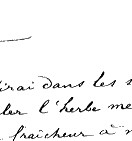 irai dans les s
ler l'herbe me
fraîcheur à m